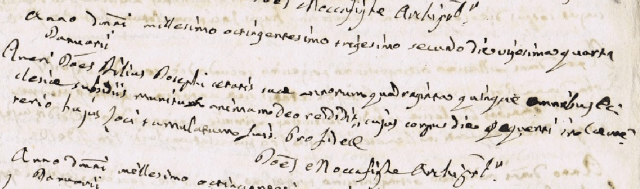 Joes Moccafighe Archipr.
Anno Domni millesimo octingentesimo trigesimo secundo die vigesima quarta
Januarii
Joes filius Josephi etatis sue annorum quadraginta quinque omnibus Ec
clesie subsidiis munitus animam Deo reddidit, cujus corpus die sequenti in Ceme
terio hujus loci tumulatum fuit. Pro fide
Joes Moccafighe Archipr.
Anno Domni millesimo
Januarii